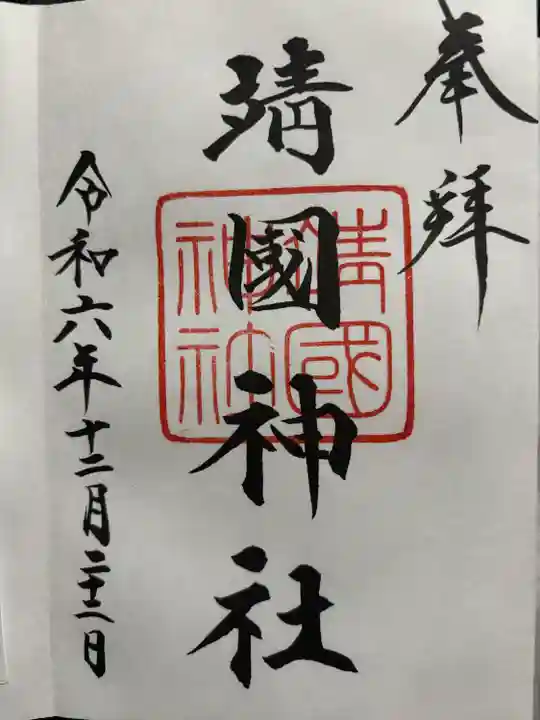 奉拝
靖國神社
靖國神社
令和六年十二月二十二日